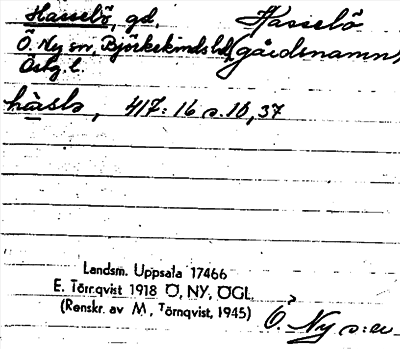 Hasselö, gd,
Hasselö
Ö. Ny sn, Björkekinds hd,
(gårdsnamn)
Östg. l.
417: 16 s. 10, 37
Landsm. Uppsala 17466
E. Törnqvist 1918 Ö, NY, ÖGL.
(Renskr. av M, Törnqvist, 1945)
Ö. Ny s:n